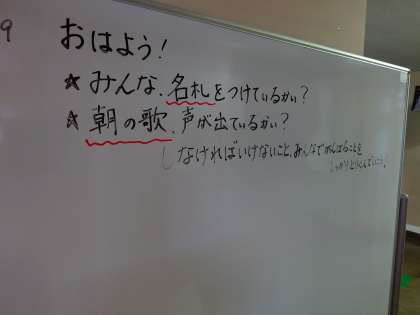 9
おはよう!
★みんな、名札をつけているかい?
★朝の歌、声が出ているかい?
しなければいけないこと、みんなでがんばることを
しっかりとりくんでいこう!